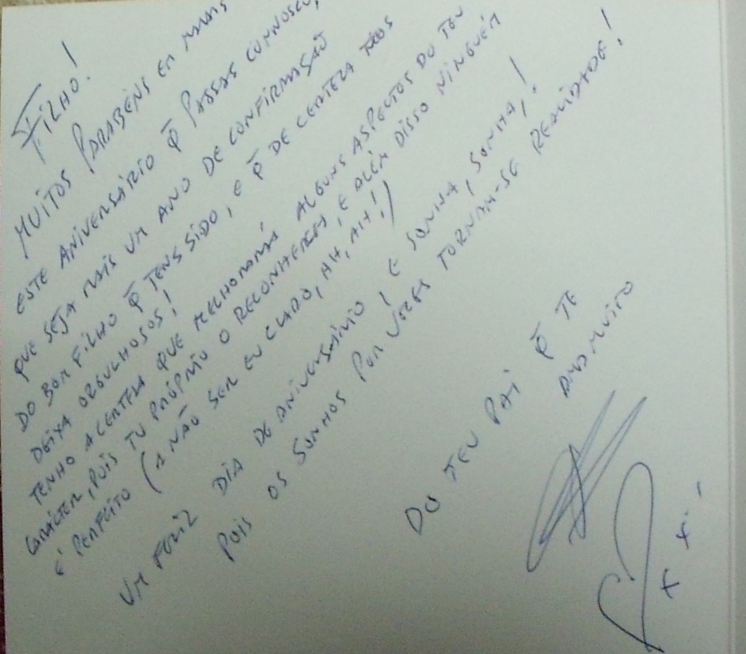 FILHO!
MUITOS PARABÉNS EM MAIS
ESTE ANIVERSÁRIO Q̃ PASSAS CONNOSCO,
QUE SEJA MAIS UM ANO DE CONFIRMAÇÃO
DO BOM FILHO Q̃ TENS SIDO, E Q̃ DE CERTEZA NOS
DEIXA ORGULHOSOS!
TENHO A CERTEZA QUE MELHORARÁ ALGUNS ASPECTOS DO TEU
CARÁCTER, POIS TU PRÓPRIO O RECONHECES, E ALÉM DISSO NINGUÉM
É PERFEITO (A NÃO SER EU CLARO, AH, AH!)
UM FELIZ DIA DE ANIVERSÁRIO! E SONHA, SONHA,!
POIS OS SONHOS POR VEZES TORNAM-SE REALIDADE!
DO TEU PAI Q̃ TE
AMA MUITO